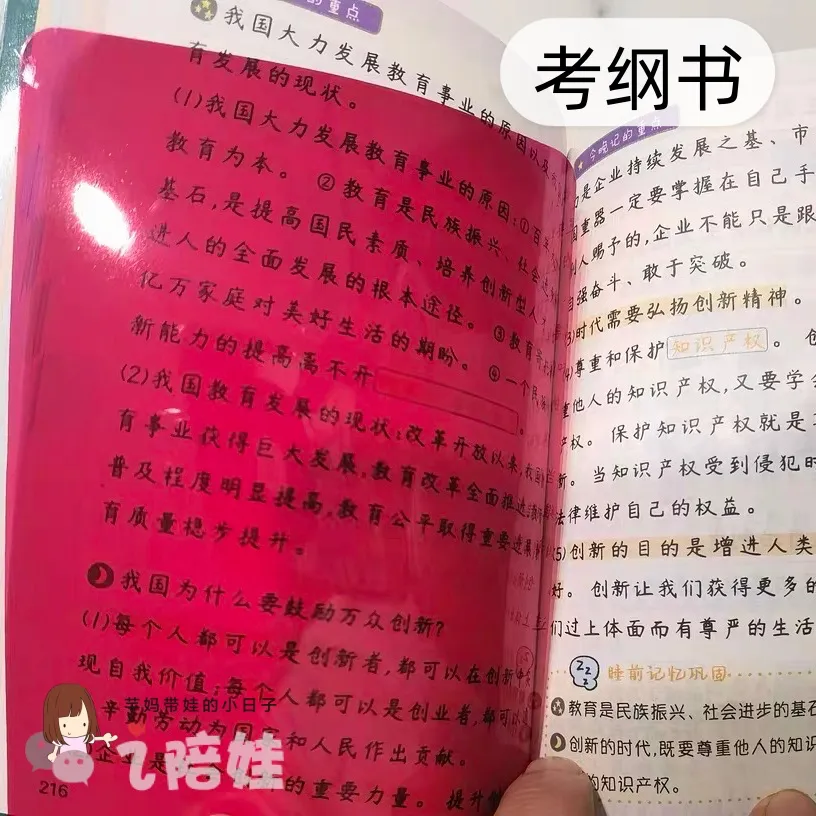 考纲书
的重点
我国大力发展教育事业的原因以及
有发展的现状。
(1)我国大力发展教育事业的原因:①百
教育为本。 ②教育是民族振兴、社会进
基石,是提高国民素质、培养创新型人
进人的全面发展的根本途径。 ③教育
亿万家庭对美好生活的期盼。 ④一个民族
新能力的提高离不开
。
(2)我国教育发展的现状:改革开放以来,我国
育事业获得巨大发展,教育改革全面推进
普及程度明显提高,教育公平取得重要进展
育质量稳步提升。
我国为什么要鼓励万众创新?
(1)每个人都可以是创新者,都可以在创新中
现自我价值;每个人都可以是创业者,都可以
辛勤劳动为国 和人民作出贡献。
企业是 新的重要力量。 提升
216
今晚记的重点
力是企业持续发展之基、市
国重器一定要掌握在自己手
别人赐予的,企业不能只是跟
自强奋斗、敢于突破。
(3)时代需要弘扬创新精神。
(4)尊重和保护知识产权。 创
重他人的知识产权,又要学会
产权。 保护知识产权就是
新。 当知识产权受到侵犯时
法律维护自己的权益。
(5)创新的目的是增进人类
好。 创新让我们获得更多的
们过上体面而有尊严的生活
zzz
睡前记忆巩固
教育是民族振兴、社会进步的基石
创新的时代,既要尊重他人的知识
的知识产权。
芊妈带娃的小日子
飞陪娃